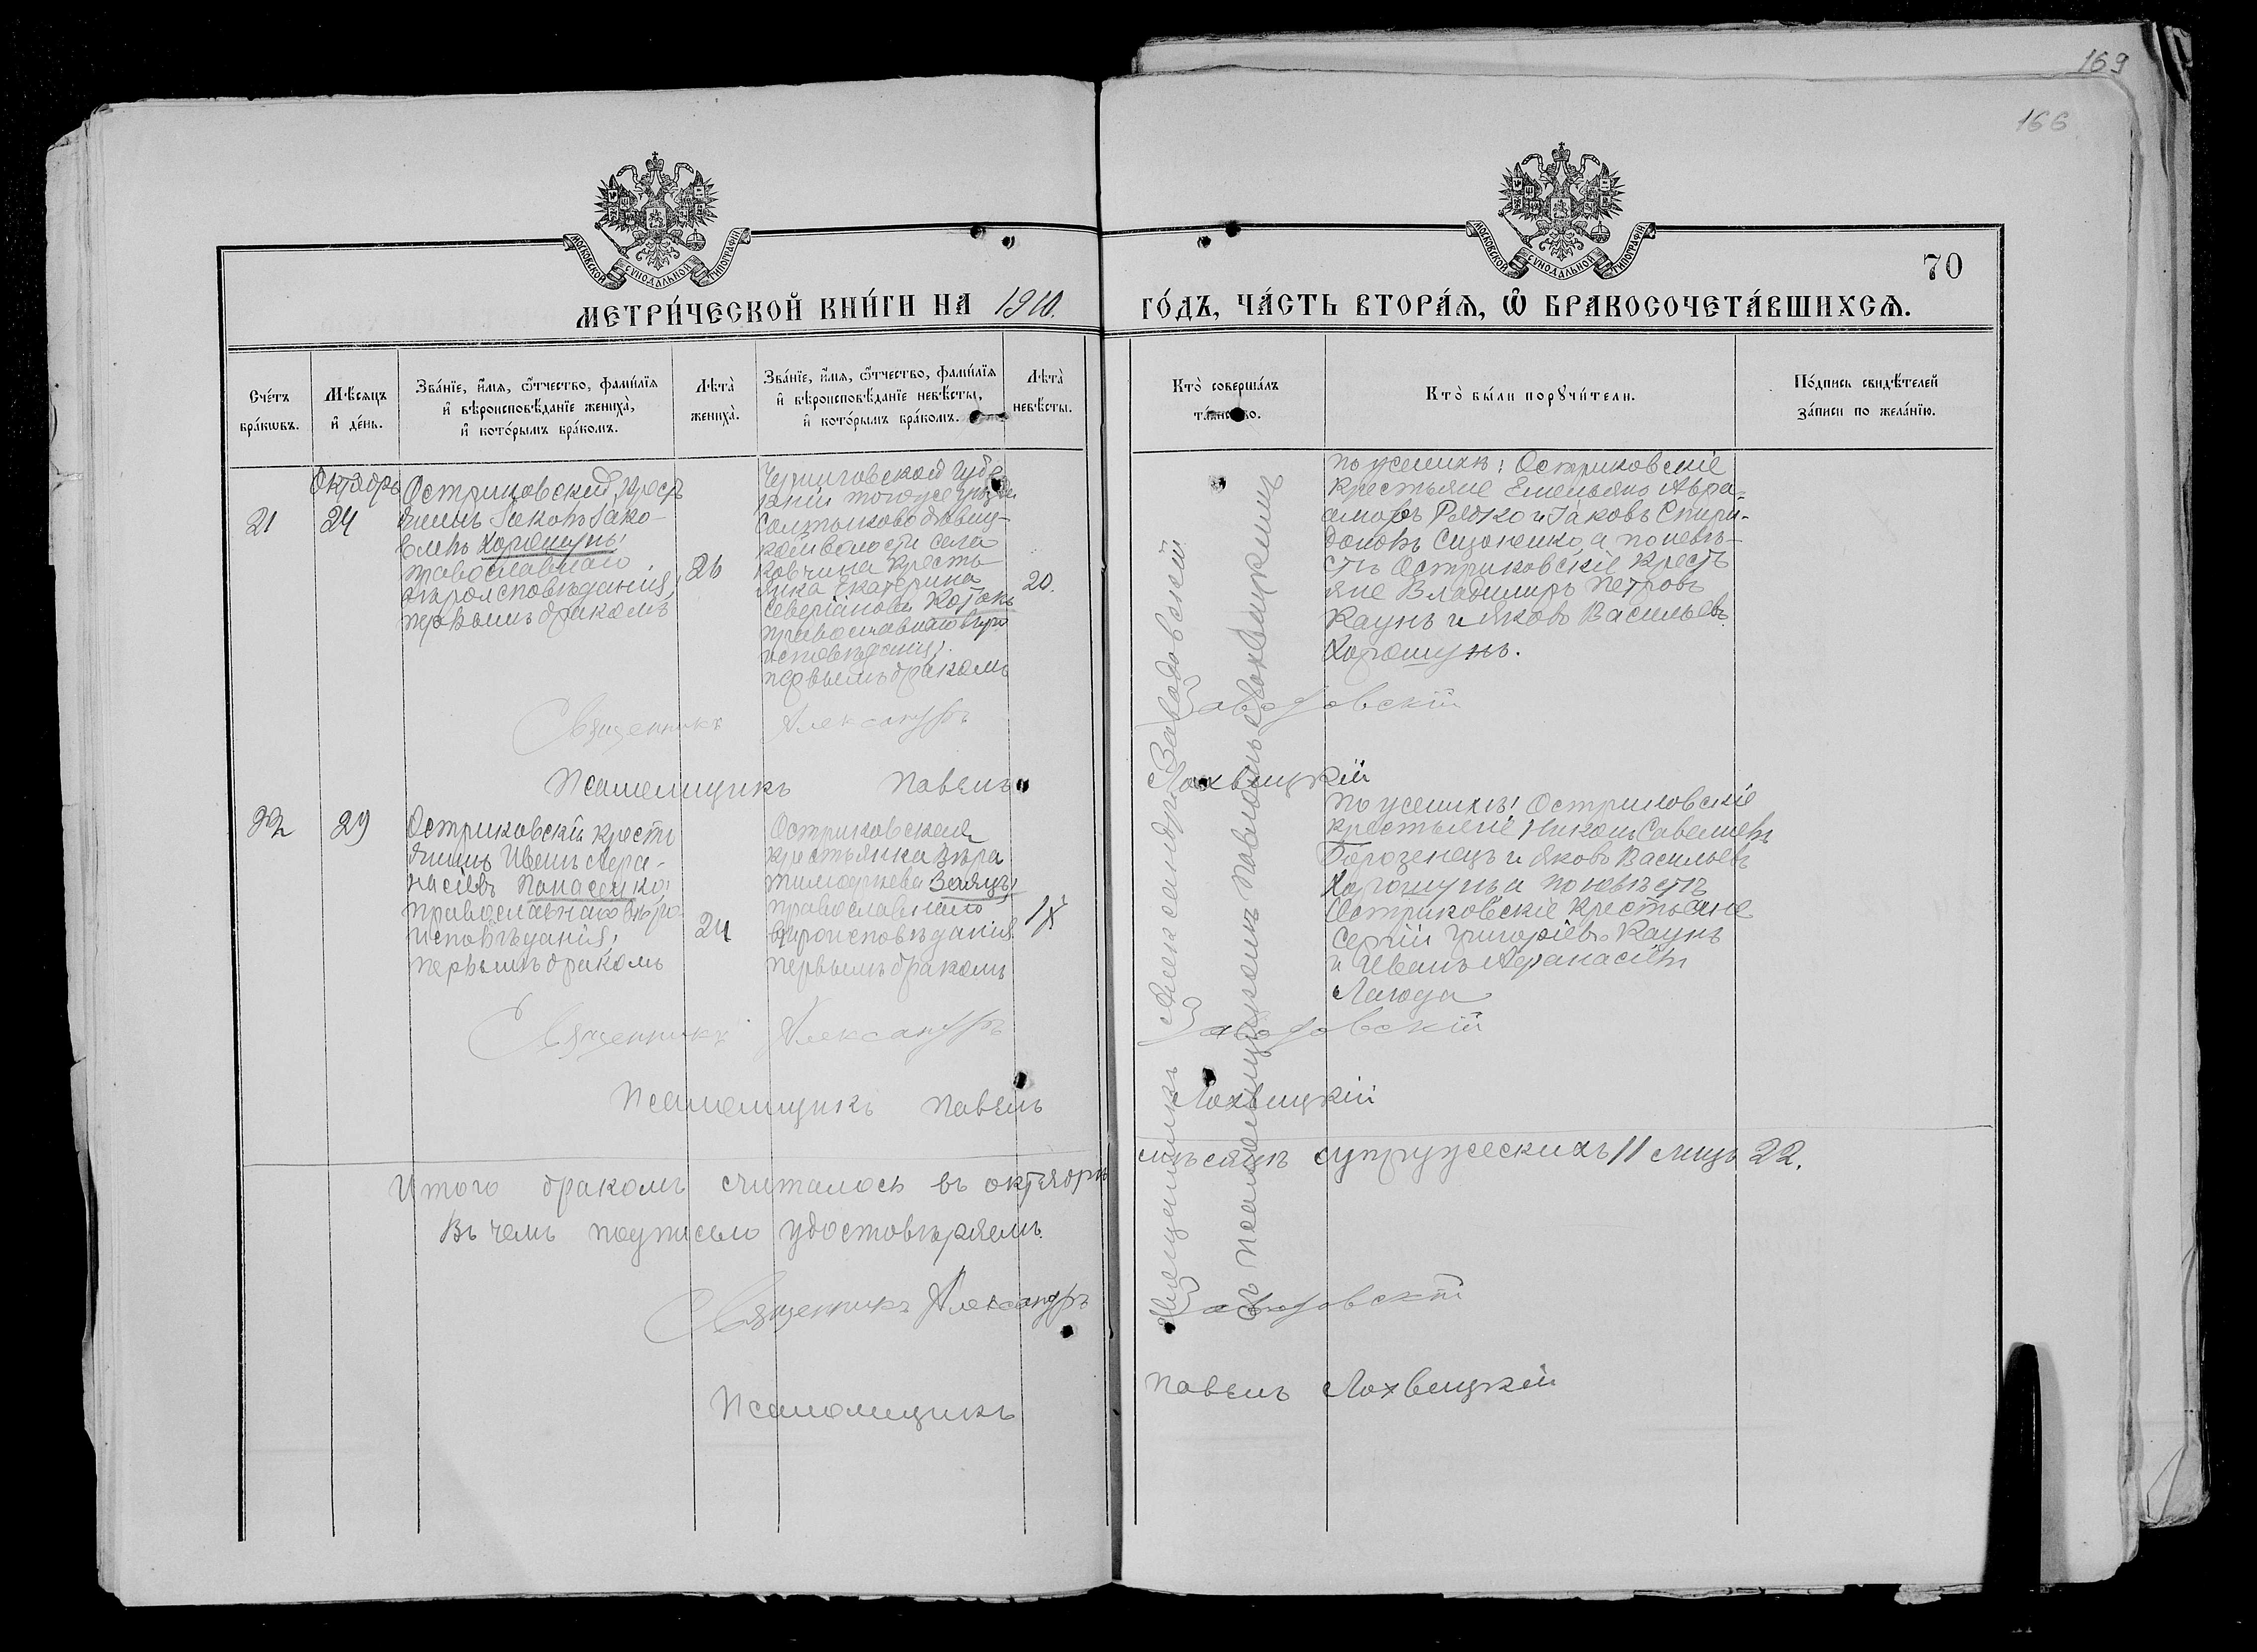 169
166
МОСКОВСКОЙ СѴНОДАЛЬНОЙ ТИПОГРАФІИ
МОСКОВСКОЙ СѴНОДАЛЬНОЙ ТИПОГРАФІИ
70
МЕТРИ́ЧЕСКОЙ КНИ́ГИ НА 1910.
ГО́ДЪ, ЧА́СТЬ ВТОРА́Ѧ, Ѡ҆ БРАКОСОЧЕТА́ВШИХСѦ.
Сче́тъ
бра́кѡвъ.
Мѣ́сѧцъ
и҆ де́нь.
Зва́нїе, и҆́мѧ, ѻ҆́тчество, фами́лїѧ
и҆ вѣроисповѣ́данїе жениха̀,
и҆ кото́рымъ бра́комъ.
Лѣта̀
жениха̀.
Зва́нїе, и҆́мѧ, ѻ҆́тчество, фами́лїѧ
и҆ вѣроисповѣ́данїе невѣ́сты,
и҆ кото́рымъ бра́комъ.
Лѣта̀
невѣ́сты.
Кто̀ соверша́лъ
та́инство.
Кто̀ бы́ли порꙋчи́тели.
По́дпись свидѣ́телей
за́писи по жела́нїю.
21
Октябрь
24
Остриковскій крестъ
янинъ Іаковъ Іако-
влевъ Хорошунъ,
православнаго
вѣроисповѣданія,
первымъ бракомъ
26
Черниговской губе
рніи того же уѣзда
Салтыково Дѣвиц-
кой волости села
Ковчина кресть
янка Екатерина
Северіанова Котокъ
православнаго вѣро
исповѣданія,
первымъ бракомъ
20.
По женихѣ: Остриковскіе
крестьяне Емельянъ Авра-
амовъ Редко и Іаковъ Спири-
доновъ Сизоненко а по невѣ-
стѣ Остриковскіе кресть
яне Владимиръ Петровъ
Каунъ и Яковъ Васильевъ
Хорошунъ.
Священникъ Александръ Заводовскій
Псаломщикъ Павелъ Лохвицкій
22
29
Остриковскій кресть
янинъ Иванъ Афа-
насіевъ Панасенко,
православнаго вѣро
исповѣданія,
первымъ бракомъ
24
Остриковская
крестьянка Вѣра
Тимофеева Заяцъ,
православнаго
вѣроисповѣданія
первымъ бракомъ
18
По женихѣ: Остриковскіе
крестьяне Никонъ Савельевъ
Борозенецъ и Яковъ Васильевъ
Хорошунъ, а по невѣстѣ
Остриковскіе крестьяне
Сергій Григоріевъ Каунъ
и Иванъ Афанасіевъ
Лагода
Священникъ Александръ Заводовскій
съ псаломщикомъ Павломъ Лохвицкимъ
Священникъ Александръ Заводовскій
Псаломщикъ Павелъ Лохвицкій
Итого бракомъ считалось въ октябрѣ мѣсяцѣ супружескихъ 11 лицъ 22.
Въ чемъ подписью удостовѣряемъ.
Священникъ Александръ Заводовскій
Псаломщикъ Павелъ Лохвицкій